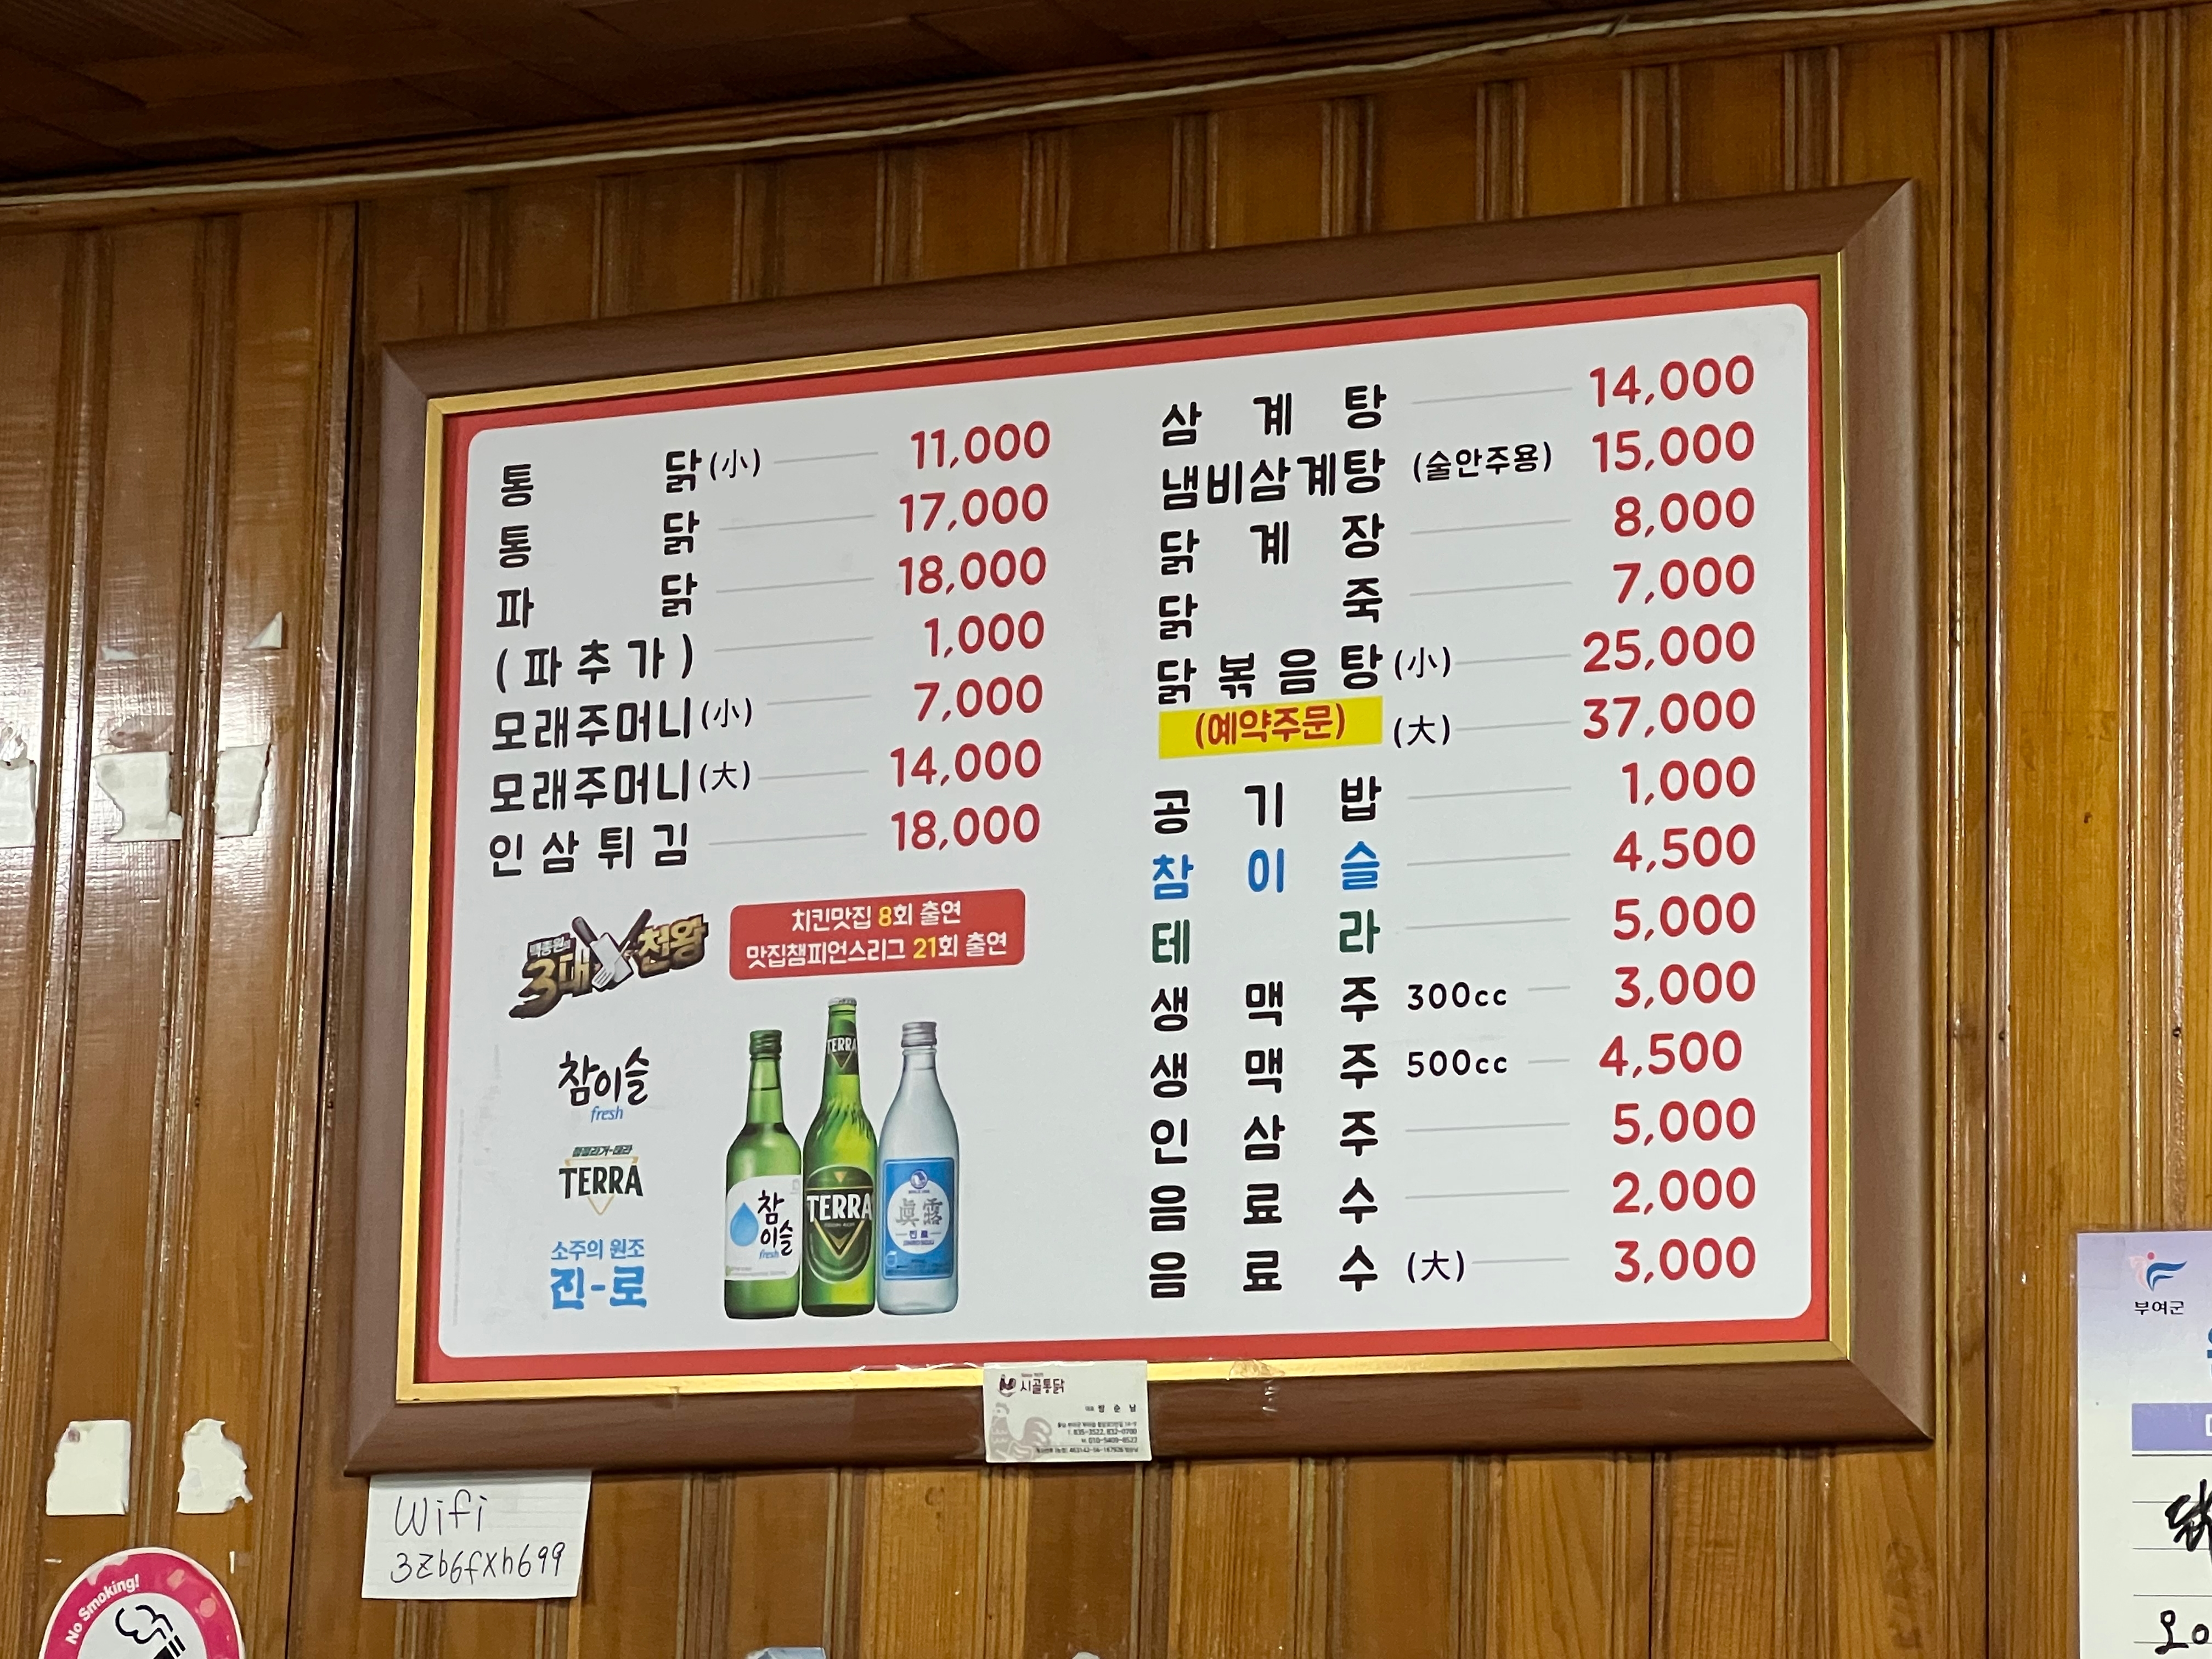 통닭(小) 11,000
통닭 17,000
파닭 18,000
(파추가) 1,000
모래주머니(小) 7,000
모래주머니(大) 14,000
인삼튀김 18,000
백종원의
3대천왕
치킨맛집 8회 출연
맛집챔피언스리그 21회 출연
참이슬
fresh
청정라거-테라
TERRA
소주의 원조
진-로
참이슬
fresh
TERRA
TERRA
眞露
진로
삼계탕 14,000
냄비삼계탕 (술안주용) 15,000
닭계장 8,000
닭죽 7,000
닭볶음탕(小) 25,000
(예약주문) (大) 37,000
공기밥 1,000
참이슬 4,500
테라 5,000
생맥주 300cc 3,000
생맥주 500cc 4,500
인삼주 5,000
음료수 2,000
음료수 (大) 3,000
시골통닭
Wifi
3zb6fxh699
No Smoking!
부여군